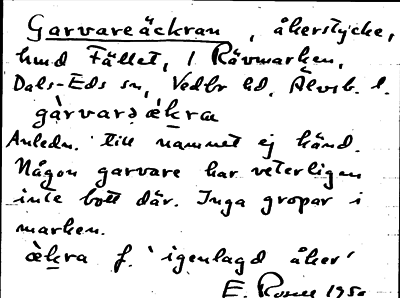 Garvareäckran, åkerstycke,
hmd Fället, l Rävmarken,
Dals-Eds sn, Vedbo hd, Älvsb. l.
gàrvarə ǽkra
Anledn. till namnet ej känd.
Någon garvare har veterligen
inte bott där. Inga gropar i
marken.
ǽkra f. 'igenlagd åker'
E. 195